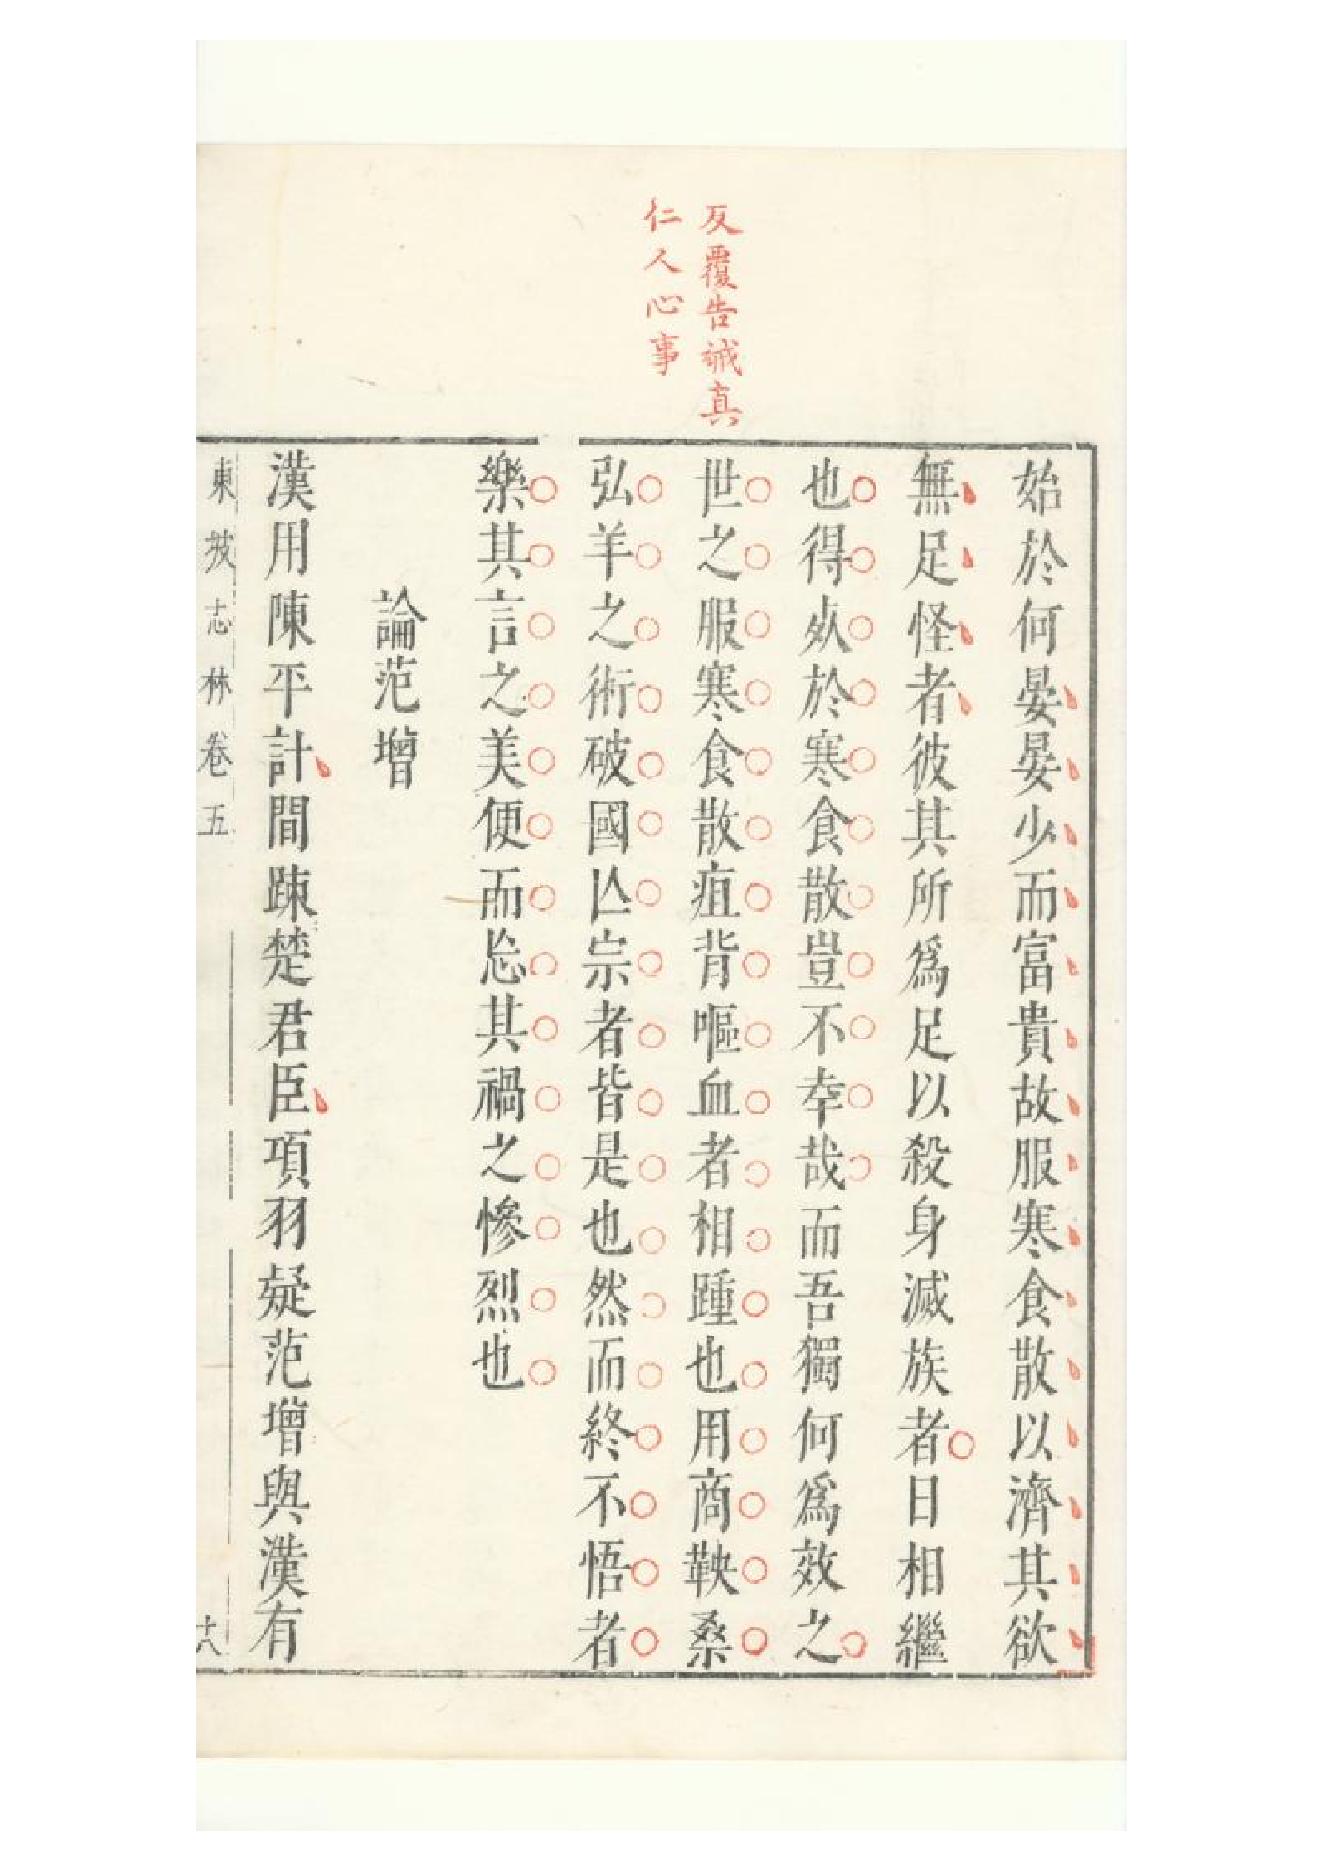 反覆告誡真
仁人心事
始於何晏晏少而富貴故服寒食散以濟其欲
無足怪者彼其所爲足以殺身滅族者日相繼
也得㱕於寒食散豈不幸哉而吾獨何爲效之
世之服寒食散疽背嘔血者相踵也用商鞅桑
弘羊之術破國亾宗者皆是也然而終不悟者
樂其言之美便而忘其禍之慘烈也
論范增
漢用陳平計間踈楚君臣項羽疑范增與漢有
東坡志林卷五
十八